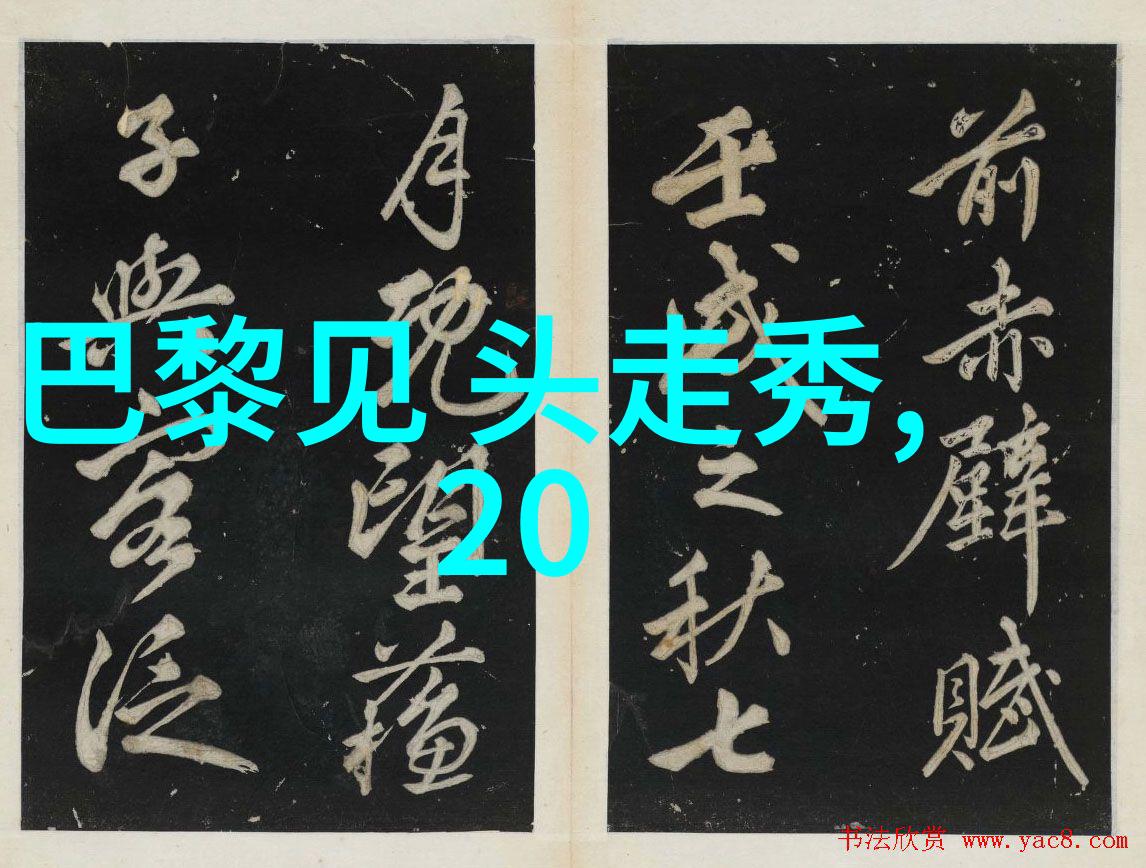 前赤壁賦
壬戌之秋七
月既望蘇
子與客泛
巴黎见 头走秀,
20
书法欣赏 www.yac8.com